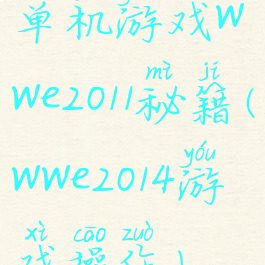 单机游戏w
mì jí
we2011秘籍(
yóu
wwe2014游
xì cāo zuò
戏操作)